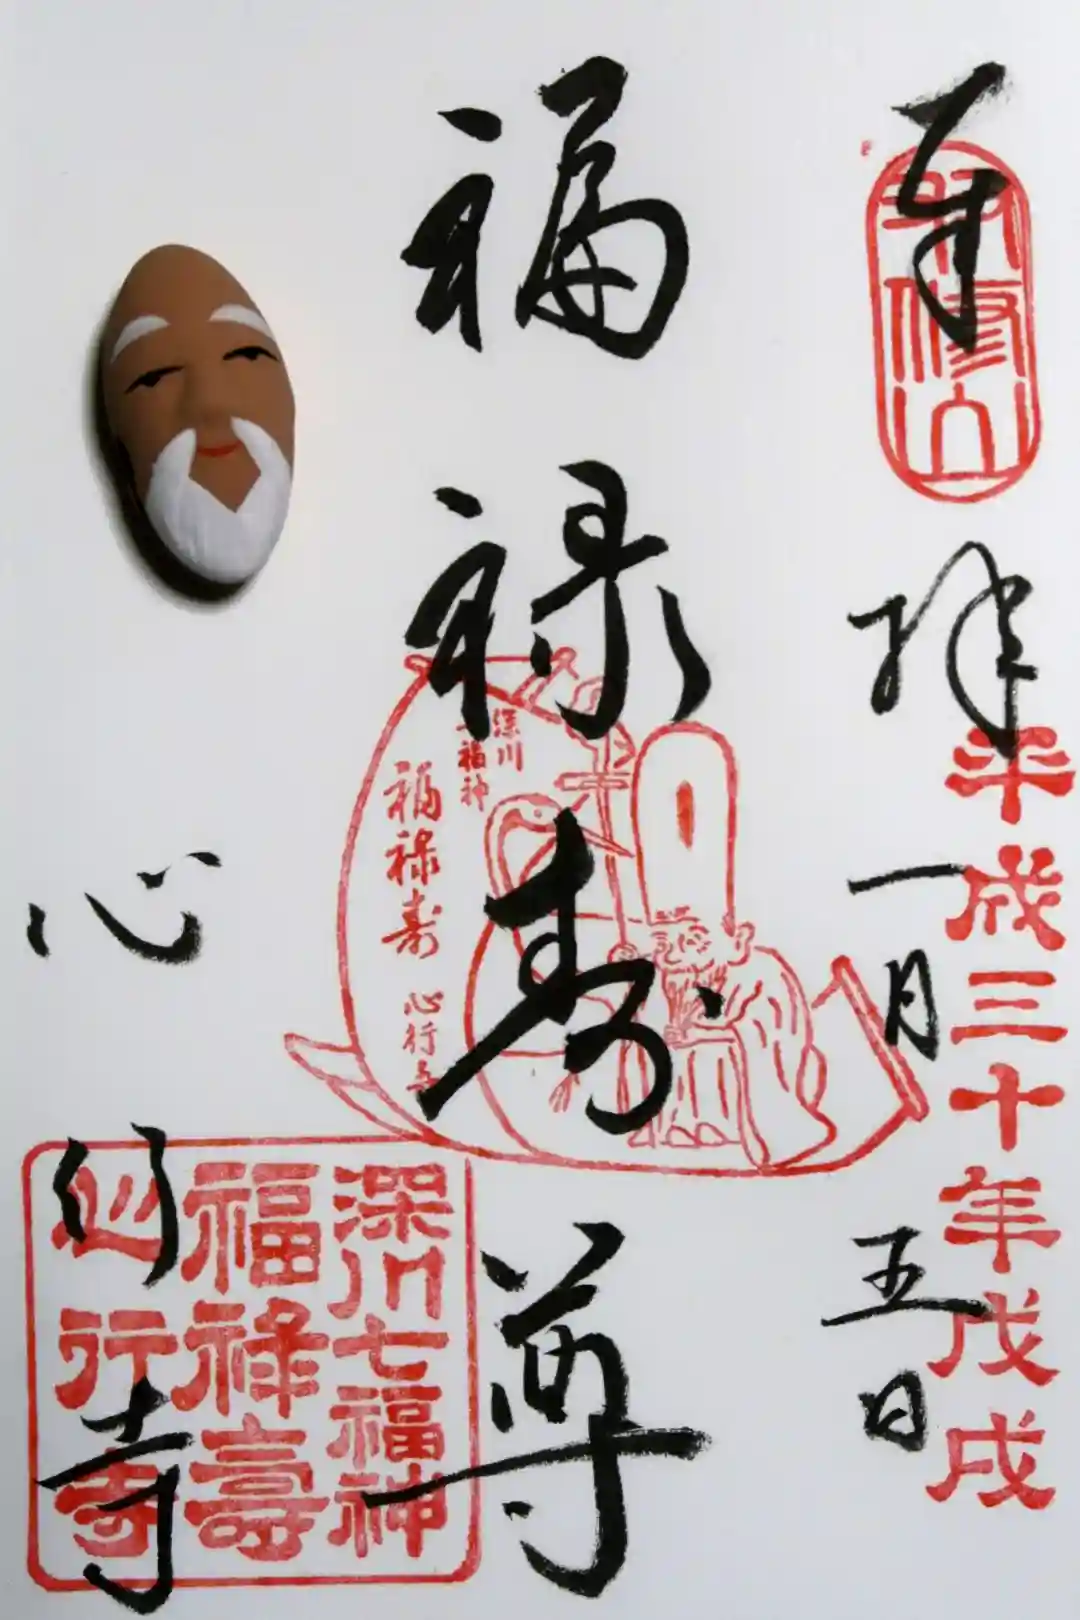 奉拝
修山
平成三十年戊戌
一月五日
福禄寿尊
深川
七福神
福禄寿
心行寺
心行寺
深川七福神
福禄壽
心行寺